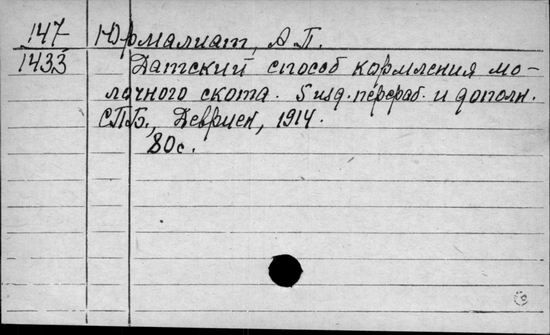 147 Юрмалиат, А.П.
1433 Датский способ кормления мо-
лочного скота. 5 изд. перераб. и дополн.
СПБ., Девриен, 1914.
80с.